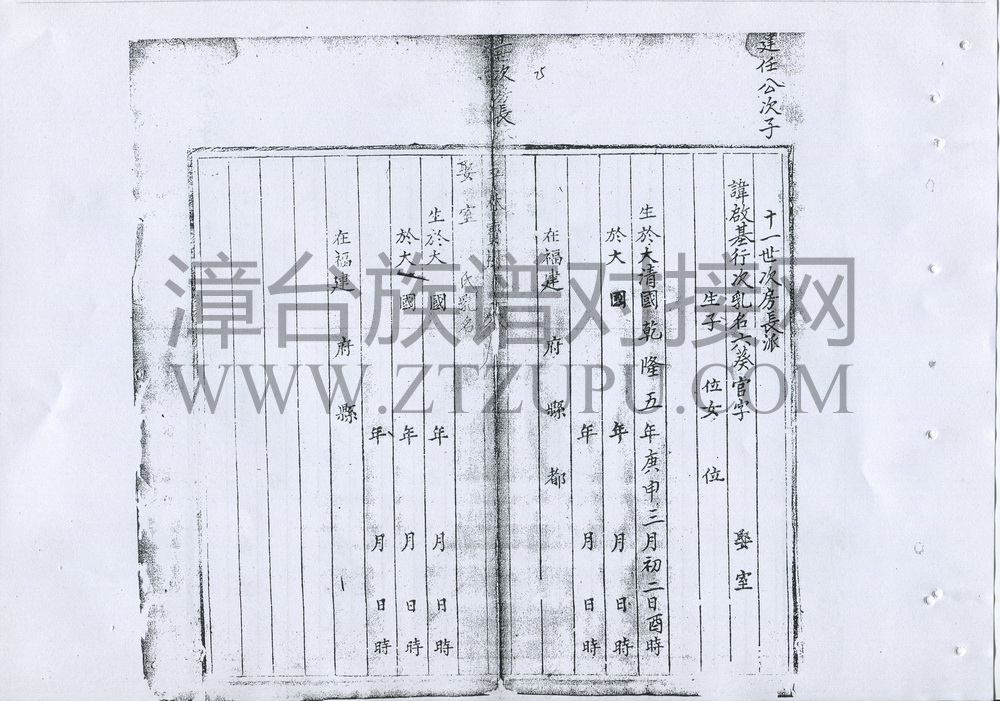 建任公次子
十一世次房長派
諱啟基行次乳名六葵官字 娶室
生子 位女 位
生於大清國乾隆五年庚申三月初二日酉時
於大 國 年 月 日時
年 月 日時
在福建 府 縣 都
世次房長
25
娶室 氏乳名
生於大 國 年 月 日時
於大 國 年 月 日時
年 月 日時
在福建 府 縣
漳台族谱对接网
WWW.ZTZUPU.COM